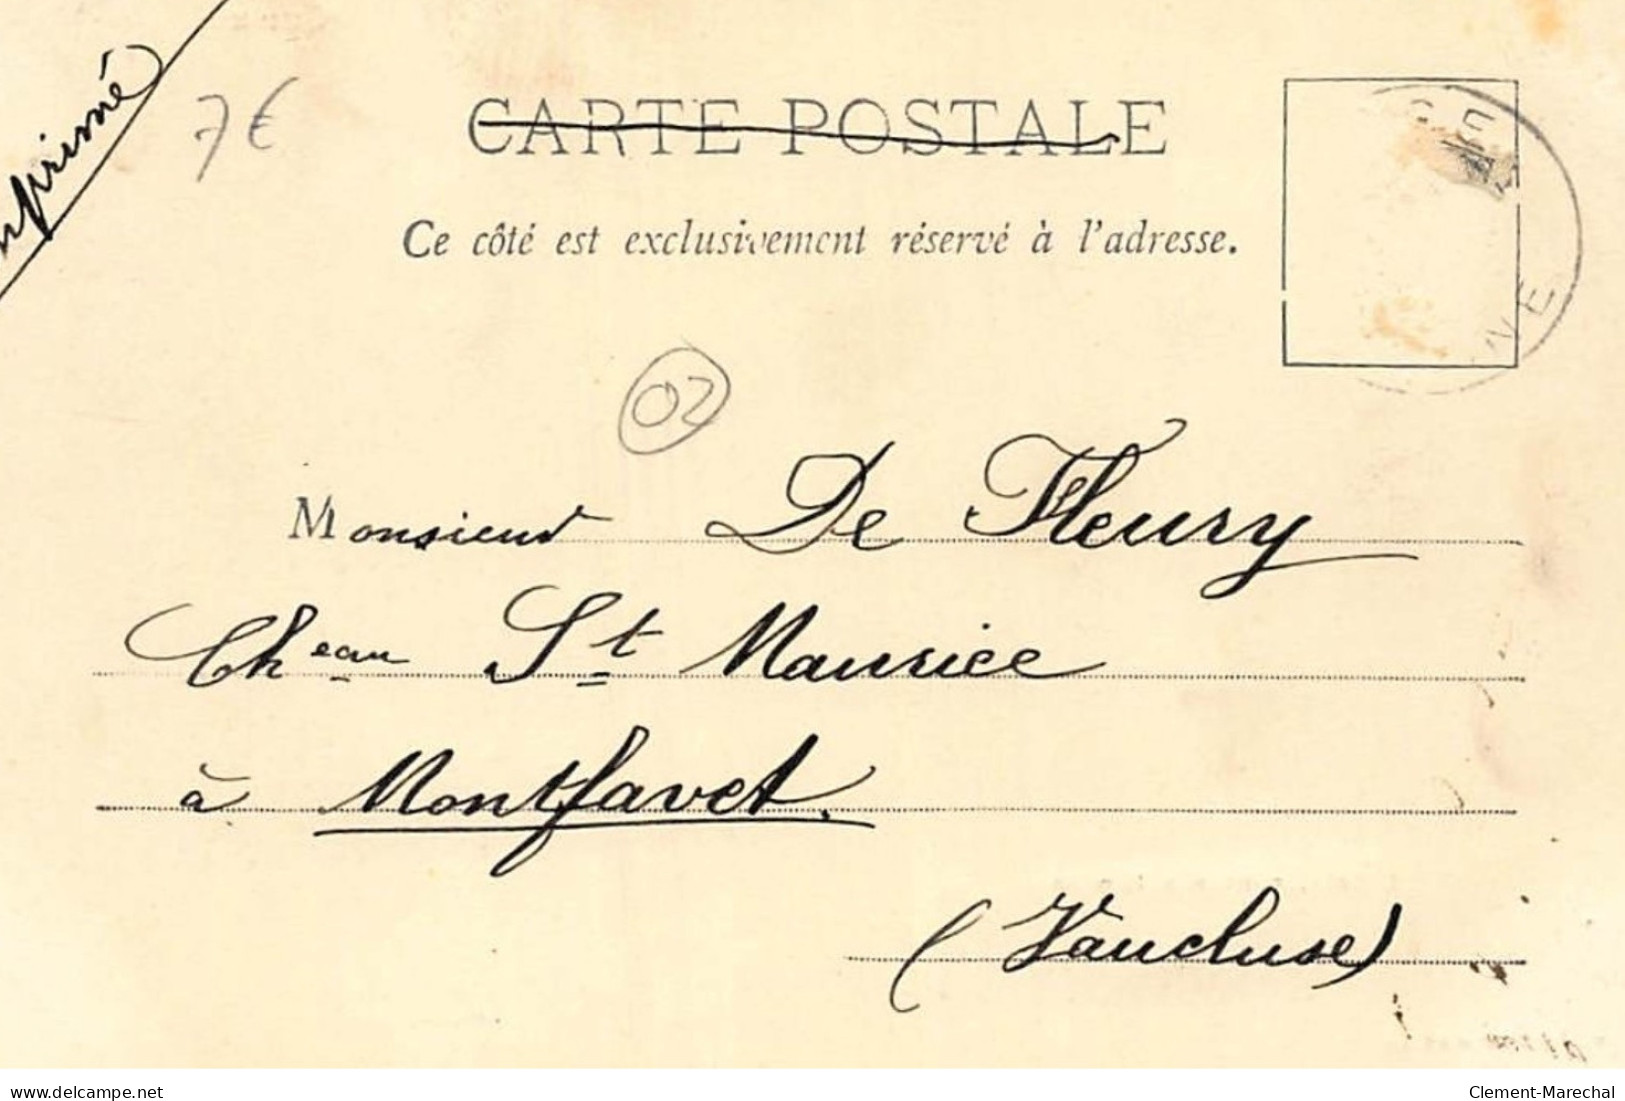 imprimé
7€
CARTE POSTALE
Ce côté est exclusivement réservé à l'adresse.
02
Monsieur De Fleury
Cheau St Maurice
à Montfavet.
(Vaucluse)
delcampe.net
Clement-Marechal